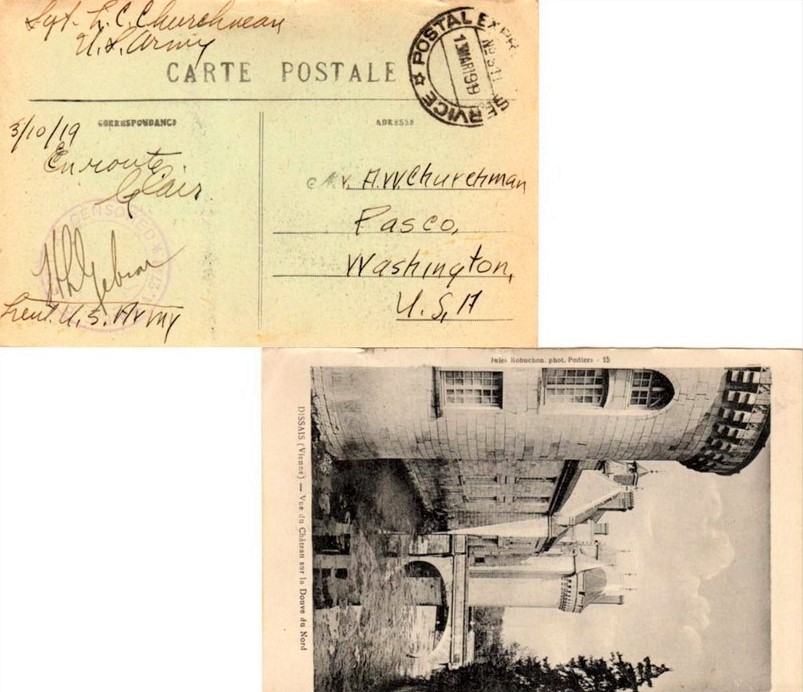 Sgt. L. C. Churchman
U.S. Army
CARTE POSTALE
POSTAL EXPR
SERVICE
13 MAR 1919
CORRESPONDANCE
ADRESSE
3/10/19
Enroute.
Clair.
Mr. A.W. Churchman
Pasco,
Washington,
U.S.A
CENSORED
Lieut. U.S. Army
Jules Robuchon, phot. Poitiers - 15
DISSAIS (Vienne) — Vue du Château sur la Douve du Nord